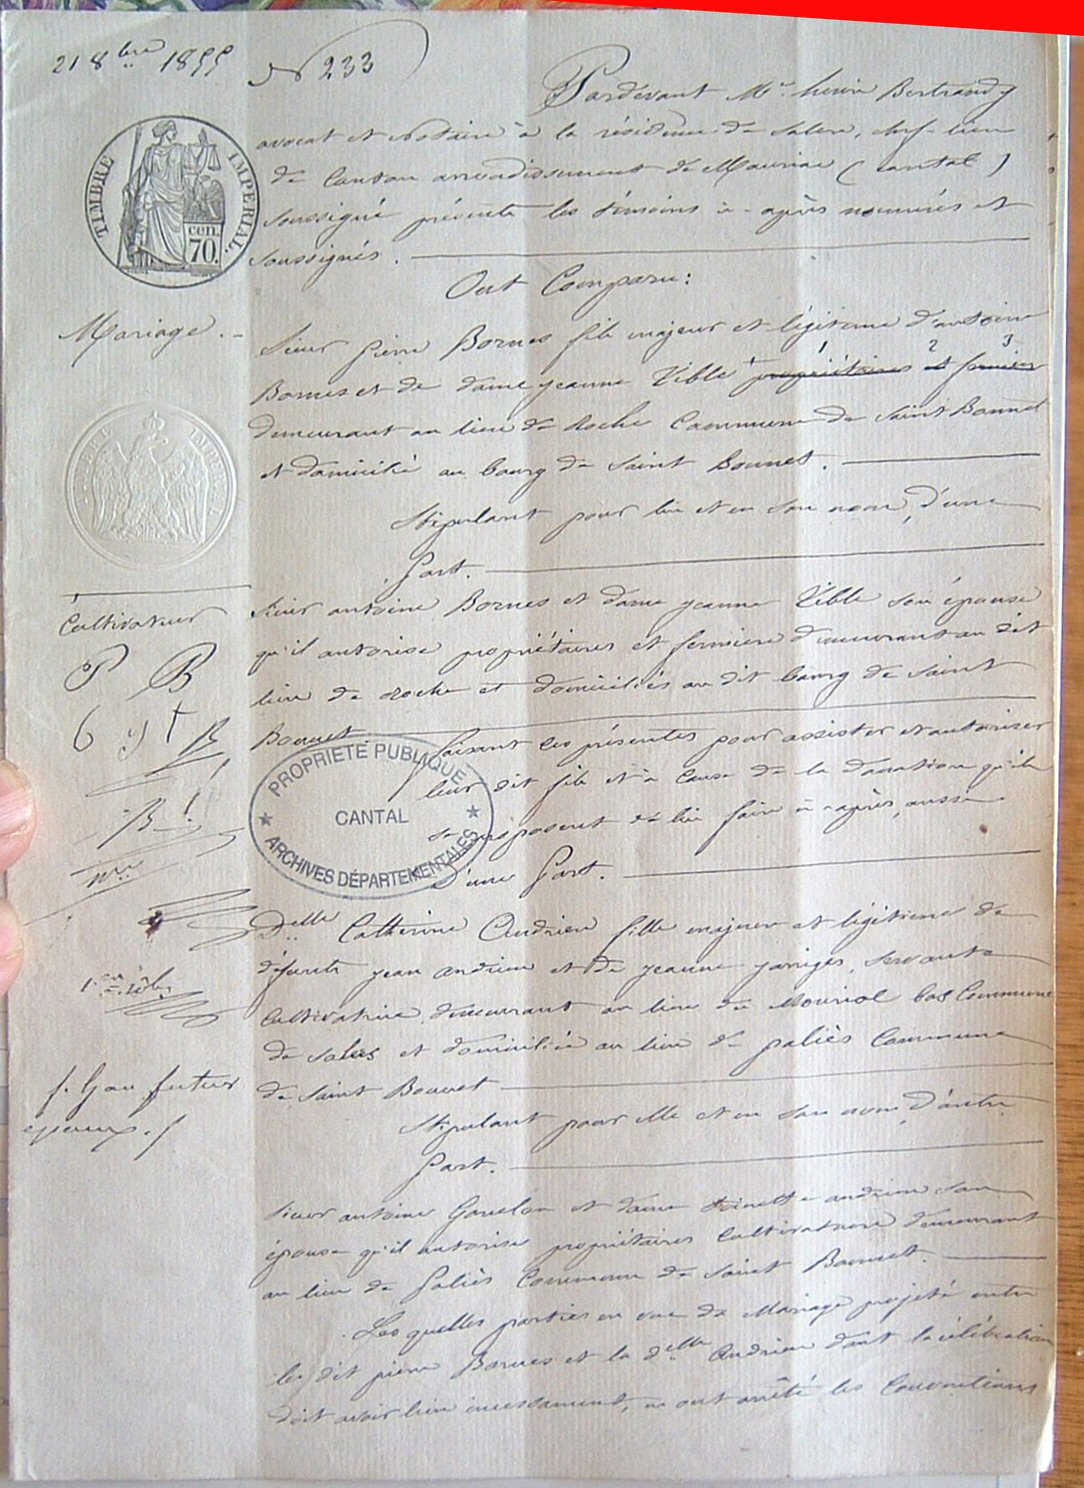 21 8bre 1855
N 233
Pardevant Me henri Bertrandy
avocat et Notaire à la résidence de Salers, chef-lieu
de Canton arrondissement de Mauriac (cantal)
soussigné présents les témoins ci-après nommés et
soussignés.
TIMBRE IMPERIAL
cen 70.
Ont Comparu:
Mariage.
Sieur pierre Bornes fils majeur et légitime d'antoine
Bornes et de dame jeanne Tible propriétaires et fermiers
1 2 3
demeurant au lieu de Roche Commune de Saint Bonnet
et domicilié au bourg de Saint Bonnet.
TIMBRE IMPERIAL
Stipulant pour lui et en son nom, d'une
Part.
Cultivateur
P B
B
Sieur antoine Bornes et dame jeanne Tible son épouse
qu'il autorise propriétaires et fermiers demeurant au dit
lieu de Roche et domiciliés au dit bourg de Saint
Bonnet
faisant ces présentes pour assister et autoriser
leur dit fils et à Cause de la donation qu'ils
se proposent de lui faire ci-après, aussi
d'une Part.
PROPRIETE PUBLIQUE
CANTAL
ARCHIVES DÉPARTEMENTALES
Delle Catherine Andrieu fille majeure et légitime de
défunts jean andrieu et de jeanne jarriges, servante
Cultivatrice, demeurant au lieu de Mouriol bas Commune
de Salers et domiciliée au lieu de paliès Commune
de Saint Bonnet
futur
epoux.
Stipulant pour elle et en son nom, d'autre
Part.
Sieur antoine et dame andrieu son
épouse qu'il autorise propriétaires Cultivateurs demeurant
au lieu de Paliès Commune de Saint Bonnet.
Les quelles parties en vue du Mariage projeté entre
le dit pierre Bornes et la delle Andrieu dont la célébration
doit avoir lieu incessament, en ont arrêté les Conventions